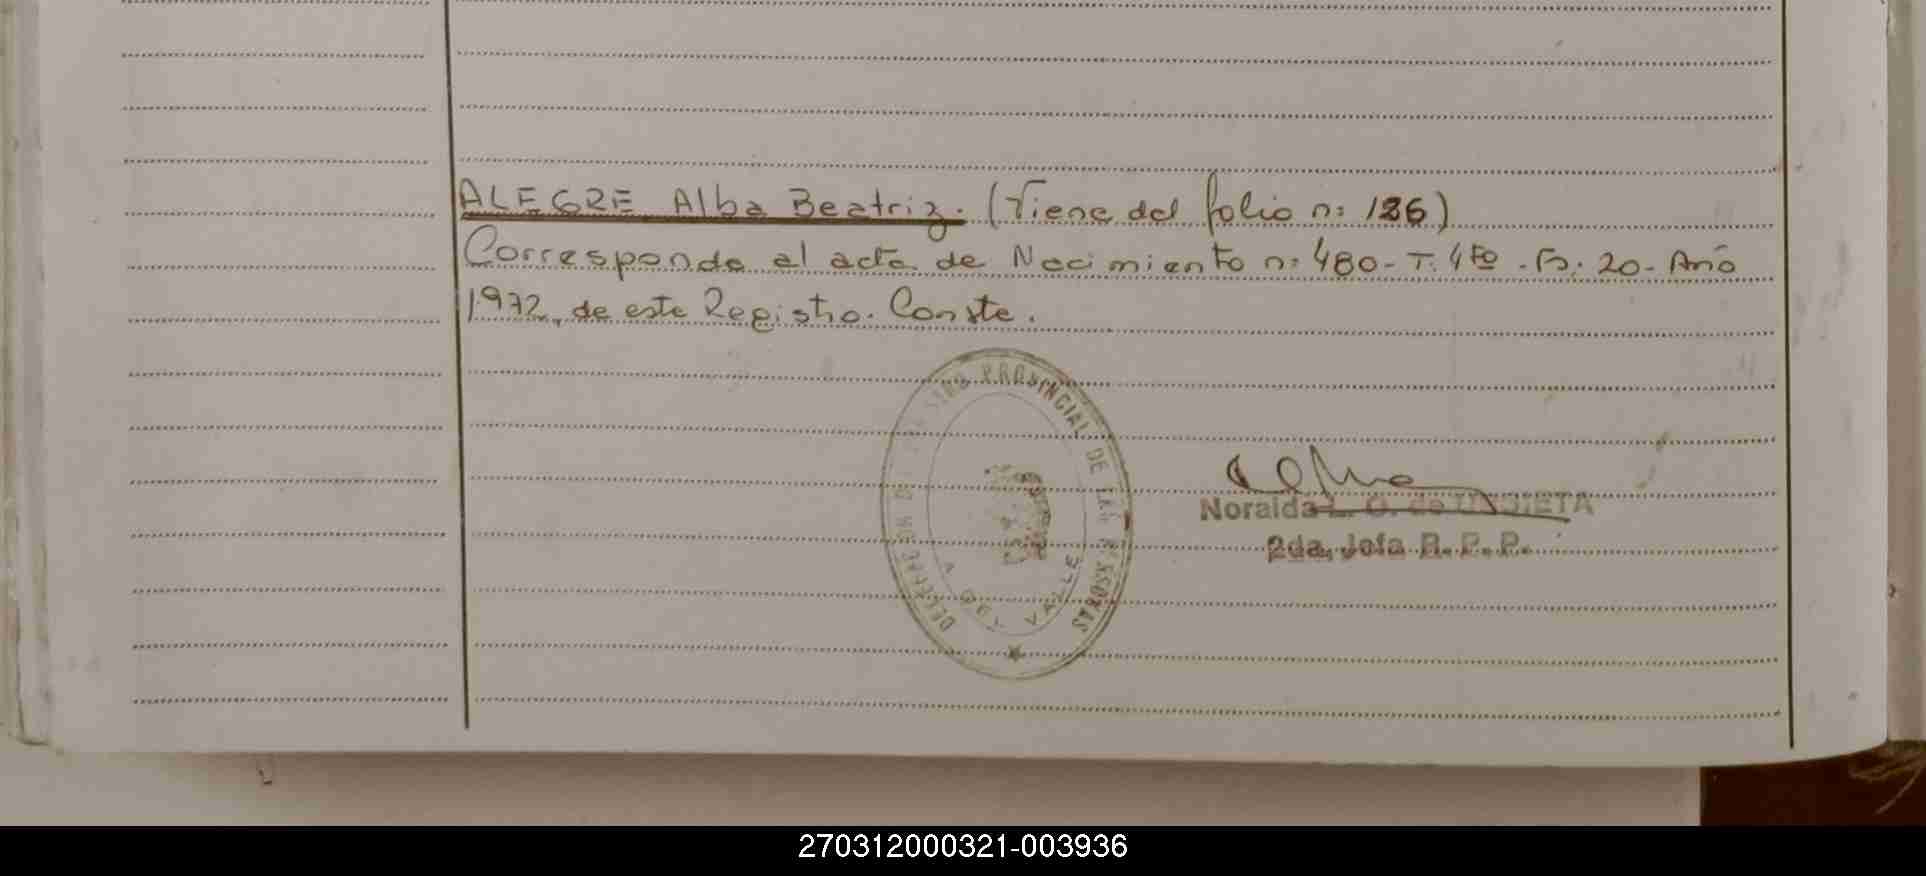 ALEGRE Alba Beatriz. (Viene del folio n: 186)
Corresponde al acta de Nacimiento n: 480- T. 4to -Fo: 20- Año
1972, de este Registro. Conste.
PROVINCIAL DE LAS PERSONAS
VALLE
Noraida L. O. de
2da. Jefa R. P. P.
270312000321-003936